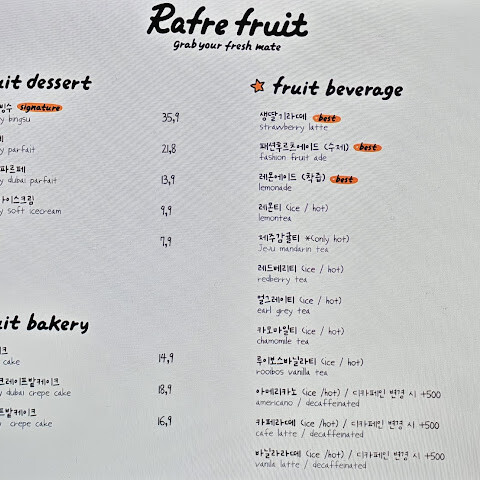 Rafre fruit
grab your fresh mate
uit dessert
빙수 signature
y bingsu
35,9
y parfait
21,8
파르페
y dubai parfait
13,9
아이스크림
y soft icecream
9,9
7,9
uit bakery
크
cake
14,9
크레이프밭케이크
y dubai crepe cake
18,9
프밭케이크
crepe cake
16,9
fruit beverage
생딸기라떼 best
strawberry latte
패션후르츠에이드 (수제) best
fashion fruit ade
레몬에이드 (착즙) best
lemonade
레몬티 (ice / hot)
lemontea
제주감귤티 *(only hot)
Jeju mandarin tea
레드베리티 (ice / hot)
redberry tea
얼그레이티 (ice / hot)
earl grey tea
카모마일티 (ice / hot)
chamomile tea
루이보스바닐라티 (ice / hot)
rooibos vanilla tea
아메리카노 (ice /hot) / 디카페인 변경 시 +500
americano / decaffeinated
카페라떼 (ice / hot) / 디카페인 변경 시 +500
cafe latte / decaffeinated
바닐라라떼 (ice / hot) / 디카페인 변경 시 +500
vanila latte / decaffeinated